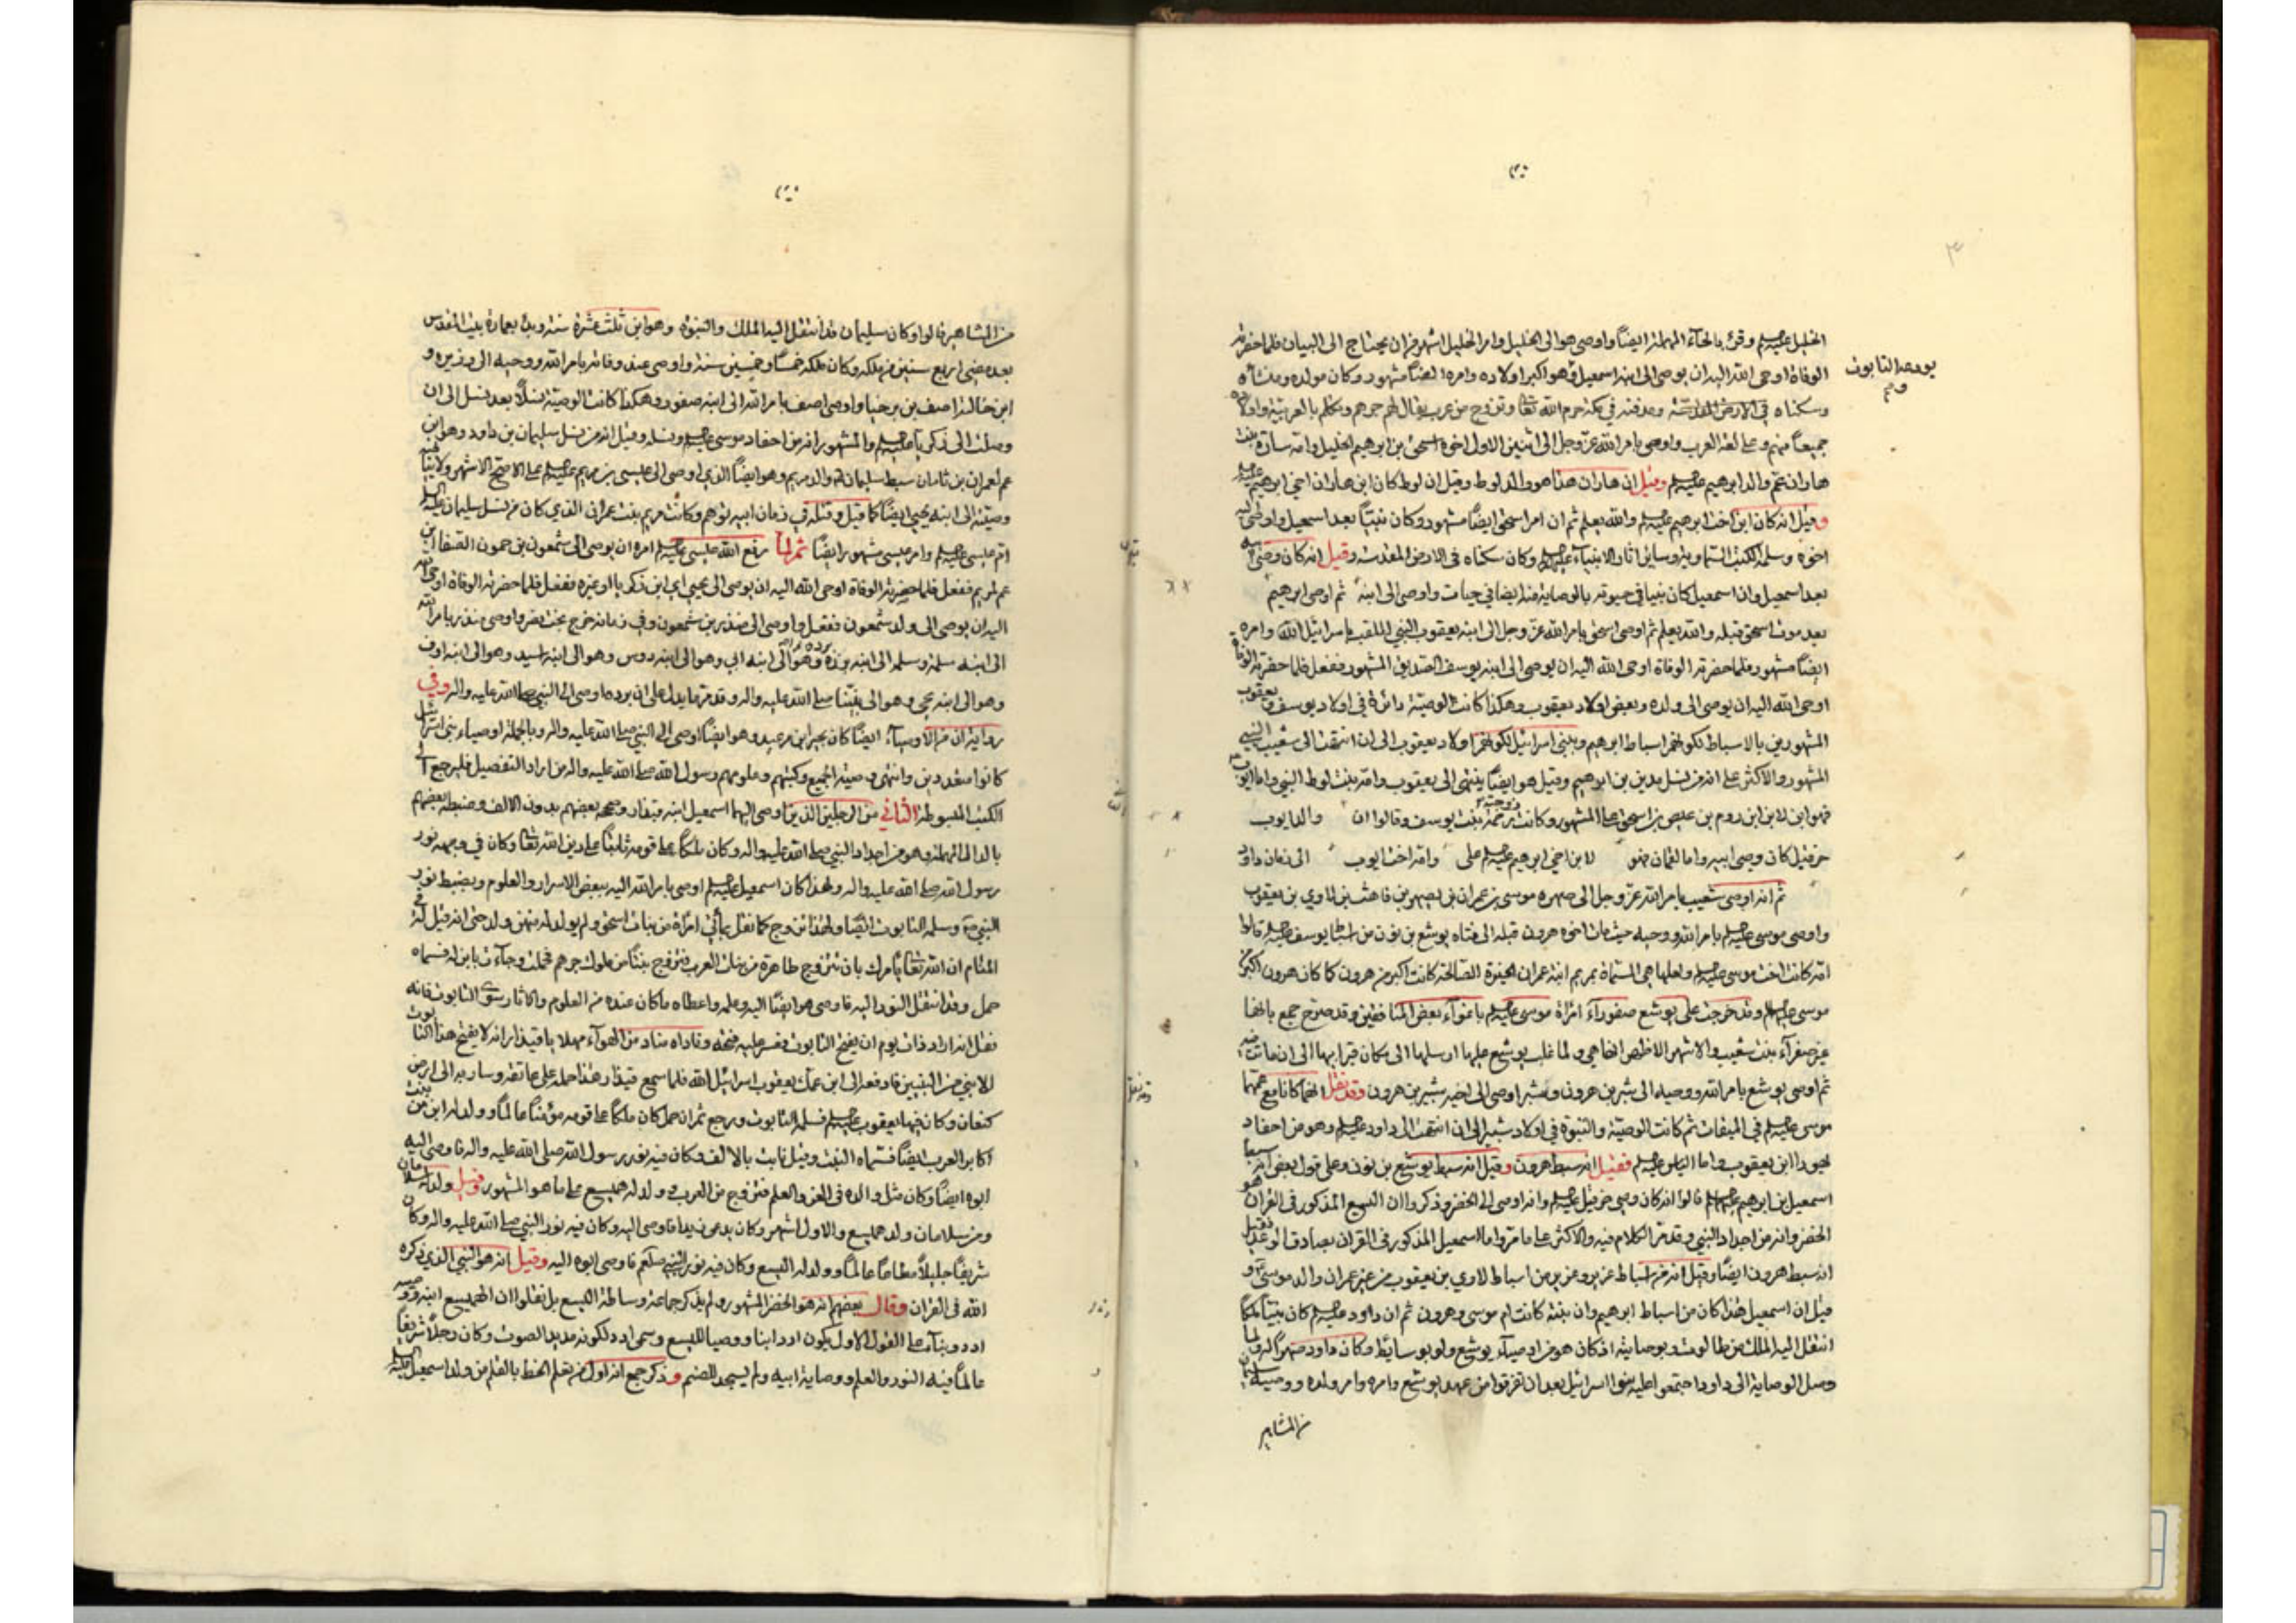 الخليل عليه السلم وقرئ بالحاء المهملة ايضاً واوصى هو الى الخليل وامر الخليل اشهر من ان يحتاج الى البيان فلما حضرته
الوفاة اوحى الله اليه ان يوصى الى ابنه اسمعيل وهو اكبر اولاده وامره ايضاً مشهور وكان مولده ومنشأه
وسكناه في الارض المقدسة ومدفنه في مكة حرم الله تعا وتزوج من عرب يقال لهم جرهم وتكلم بالعربية واولاده
جميعاً منهم وعلى لغة العرب واوصى بامر الله عز وجل الى اثنين الاول اخوه اسحق بن ابرهيم الخليل وامه سارة بنت
هاران عم والد ابرهيم عليه السلم وقيل ان هاران هذا هو والد لوط وقيل ان لوط كان ابن هاران اخي ابرهيم عليه السلم
وقيل انه كان ابن اخت ابرهيم عليه السلم والله يعلم ثم ان امر اسحق ايضاً مشهور وكان نبياً بعد اسمعيل واوصى اليه
اخوه وسلمه الكتب السماوية وسائر اثار الانبياء عليهم السلم وكان سكناه في الارض المقدسة وقيل انه كان وصى ابيه
بعد اسمعيل وان اسمعيل كان نبيا في حيوته بالوصاية منه ايضا في حيات واوصى الى ابنه ثم اوصى ابرهيم
بعد موت اسحق قبله والله يعلم ثم اوصى اسحق بامر الله عز وجل الى ابنه يعقوب النبي الملقب باسرائيل الله وامره
ايضاً مشهور فلما حضرته الوفاة اوحى الله اليه ان يوصى الى ابنه يوسف الصديق المشهور ففعل فلما حضرته الوفاة
اوحى الله اليه ان يوصى الى ولده وبعض اولاد يعقوب وهكذا كانت الوصية دائرة في اولاد يوسف ويعقوب
المشهورين بالاسباط لكونهم اسباط ابرهيم وبنى اسرائيل لكونهم اولاد يعقوب الى ان انتهت الى شعيب النبي
المشهور والاكثر على انه من نسل مدين بن ابرهيم وقيل هو ايضاً ينتهى الى يعقوب وامه بنت لوط النبي واما ايوب
فهو ابن لابن ابن روم بن عيص بن اسحق على المشهور وكانت زوجته رحمة بنت يوسف وقالوا ان والد ايوب
حزقيل كان وصى ابيه واما لقمان فهو لابن اخي ابرهيم عليه السلم على وامه اخت ايوب الى زمان داود
ثم انه اوصى شعيب بامر الله عز وجل الى صهره موسى بن عمران بن يصهر بن قاهث بن لاوي بن يعقوب
واوصى موسى عليه السلم بامر الله ووحيه حيث مات اخوه هرون قبله الى فتاه يوشع بن نون من اسباط يوسف عليه السلم قالوا
امه كانت اخت موسى عليه السلم ولعلها هي المسماة بمريم ابنة عمران الصالحة كانت اكبر من هرون كما كان هرون اكبر من
موسى عليه السلم وقد خرجت على يوشع صفوراء امراة موسى عليه السلم باغواء بعض المنافقين وقد صرح جمع بانها
غير صفراء بنت شعيب والاشهر الاظهر انها هي ولما غلب يوشع عليها ارسلها الى مكان قرابها الى ان ماتت فيه
ثم اوصى يوشع بامر الله ووصاه الى شبر بن هرون وشبر اوصى الى اخيه شبير بن هرون وقد نقل انهما كانا مع عمهما
موسى عليه السلم في الميقات ثم كانت الوصية والنبوة في اولاد شبر الى ان انتهت الى داود عليه السلم وهو من احفاد
يهودا ابن يعقوب واما الياس عليه السلم فقيل انه سبط هرون وقيل انه سبط يوشع بن نون وعلى قول بعض انه
اسمعيل بن ابرهيم عليهما السلم قالوا انه كان وصى حزقيل عليه السلم وانه اوصى الى الخضر وذكروا ان اليسع المذكور في القران هو
الخضر وانه من اجداد النبي وقد مر الكلام فيه والاكثر على ما مر واما اسمعيل المذكور في القران بصادق الوعد فقيل
انه سبط هرون ايضاً وقيل انه من اسباط عزير وعزير من اسباط لاوي بن يعقوب من غير عمران والد موسى و
قيل ان اسمعيل هذا كان من اسباط ابرهيم وان بنته كانت ام موسى وهرون ثم ان داود عليه السلم كان نبيا ملكا
انتقل اليه الملك من طالوت وبوصايته اذ كان هو من اوصياء يوشع ولو بوسائط وكان داود صهراً له ولما
وصل الوصاية الى داود اجتمعوا عليه بنوا اسرائيل بعد ان تفرقوا من عهد يوشع وامره وامر ولده ووصيه سليمان
من المشاهير
التابوت
من المشاهير قالوا وكان سليمان قد انتقل اليه الملك والنبوة وهو ابن ثلث عشرة سنة وبدا بعمارة بيت المقدس
بعد مضى اربع سنين من ملكه وكان ملكه خمساً وخمسين سنة واوصى عند وفاته بامر الله ووحيه الى وزيره و
ابن خالته اصف بن برخيا واوصى اصف بامر الله الى ابنه صفور وهكذا كانت الوصية نسلاً بعد نسل الى ان
وصلت الى زكريا عليه السلم والمشهور انه من احفاد موسى عليه السلم ونسله وقيل انه من نسل سليمان بن داود وهو ابن
عم لعمران بن ماثان سبط سليمان والد مريم وهو ايضاً الذي اوصى الى عيسى بن مريم عليه السلم على الاصح الاشهر
وصيته الى ابنه يحيى ايضاً كما قيل وقتله في زمان ابيه وكانت مريم بنت عمران الذي كان من نسل سليمان عليه السلم
ام عيسى عليه السلم وامر عيسى مشهور ايضاً ثم لما رفع الله عيسى عليه السلم امره ان يوصى الى شمعون بن حمون الصفا ابن
عم لمريم ففعل فلما حضرته الوفاة اوحى الله اليه ان يوصى الى يحيى اي ابن زكريا او غيره ففعل فلما حضرته الوفاة اوحى الله
اليه ان يوصى الى ولد شمعون ففعل واوصى الى منذر بن شمعون وفي زمانه خرج بخت نصر واوصى منذر بامر الله
الى ابنه سلمة وسلمة الى ابنه برزة وهو الى ابنه ابي وهو الى ابنه دوس وهو الى ابنه اسيد وهو الى ابنه اوف
وهو الى ابنه يحيى وهو الى نبينا صلى الله عليه واله وقد مر ما يدل على ان برده اوصى الى النبي صلى الله عليه واله وفي
رواية ان من الاوصياء ايضاً كان بحيرا وهو ايضاً اوصى الى النبي صلى الله عليه واله وبالجملة اوصياء بنى اسرائيل
كانوا متعددين وانتهى وصية الجميع وكتبهم وعلومهم رسول الله صلى الله عليه واله من اراد التفصيل فليرجع الى
الكتب المبسوطة الثاني من الرجلين الذين اوصى اليهما اسمعيل ابنه قيدار وصححه بعضهم بدون الالف وضبطه بعضهم
بالدال المهملة وهو من اجداد النبي صلى الله عليه واله وكان ملكاً على قومه ثابتاً على دين الله تعا وكان في وجهه نور
رسول الله صلى الله عليه واله ولهذا كان اسمعيل عليه السلم اوصى بامر الله اليه ببعض الاسرار والعلوم وبضبط نور
النبي ص وسلمه التابوت ايضاً ولهذا تزوج كما نقل بمأتي امراة من بنات اسحق ولم يولد له منهن ولد حتى انه قيل له في
المنام ان الله تعا يامرك بان تتزوج طاهرة من بنات العرب فتزوج بنتاً من ملوك جرهم فحملت وجاءت بابن له فسماه
حمل وقد انتقل النور اليه فاوصى هو ايضاً اليه وعلمه واعطاه ما كان عنده من العلوم والاثار سوى التابوت فانه
نقل انه اراد ذات يوم ان يفتح التابوت فعسر عليه فتحه وناداه مناد من الهواء مهلا يا قيذار انه لا يفتح هذا التابوت
الا نبي من النبيين فادفعه الى ابن عمك يعقوب اسرائيل الله فلما سمع قيذار هذا حمله على عاتقه وسار به الى ارض
كنعان وكان فيها يعقوب عليه السلم فسلمه التابوت ورجع ثم ان حمل كان ملكاً على قومه مؤمناً عالماً وولد له ابن من بنت
اكابر العرب ايضاً فسماه النبت وقيل نابت بالالف وكان فيه نور رسول الله صلى الله عليه واله فاوصى اليه
ابوه ايضاً وكان مثل والده في العز والعلم فتزوج من العرب وولد له هميسع على ما هو المشهور وقيل ولد له سلامان
ومن سلامان ولد هميسع والاول اشهر وكان يدعى فاوصى اليه وكان فيه نور النبي صلى الله عليه واله وكان
شريفاً جليلاً مطاعاً عالماً وولد له اليسع وكان فيه نور النبي صلعم فاوصى ابوه اليه وقيل انه هو النبي الذي ذكره
الله في القران وقال بعضهم انه هو الخضر المشهور ولم يذكر جماعة وساطة اليسع بل نقلوا ان الهميسع ابنه ووصيه
ادد وبناء على القول الاول يكون ادد ابنا ووصيا لليسع وسمى ادد لكونه مديد الصوت وكان رجلاً شريفاً
عالماً فيه النور والعلم ووصاية ابيه ولم يسجد للصنم وذكر جمع انه اول من تعلم الخط بالقلم من ولد اسمعيل عليه السلم